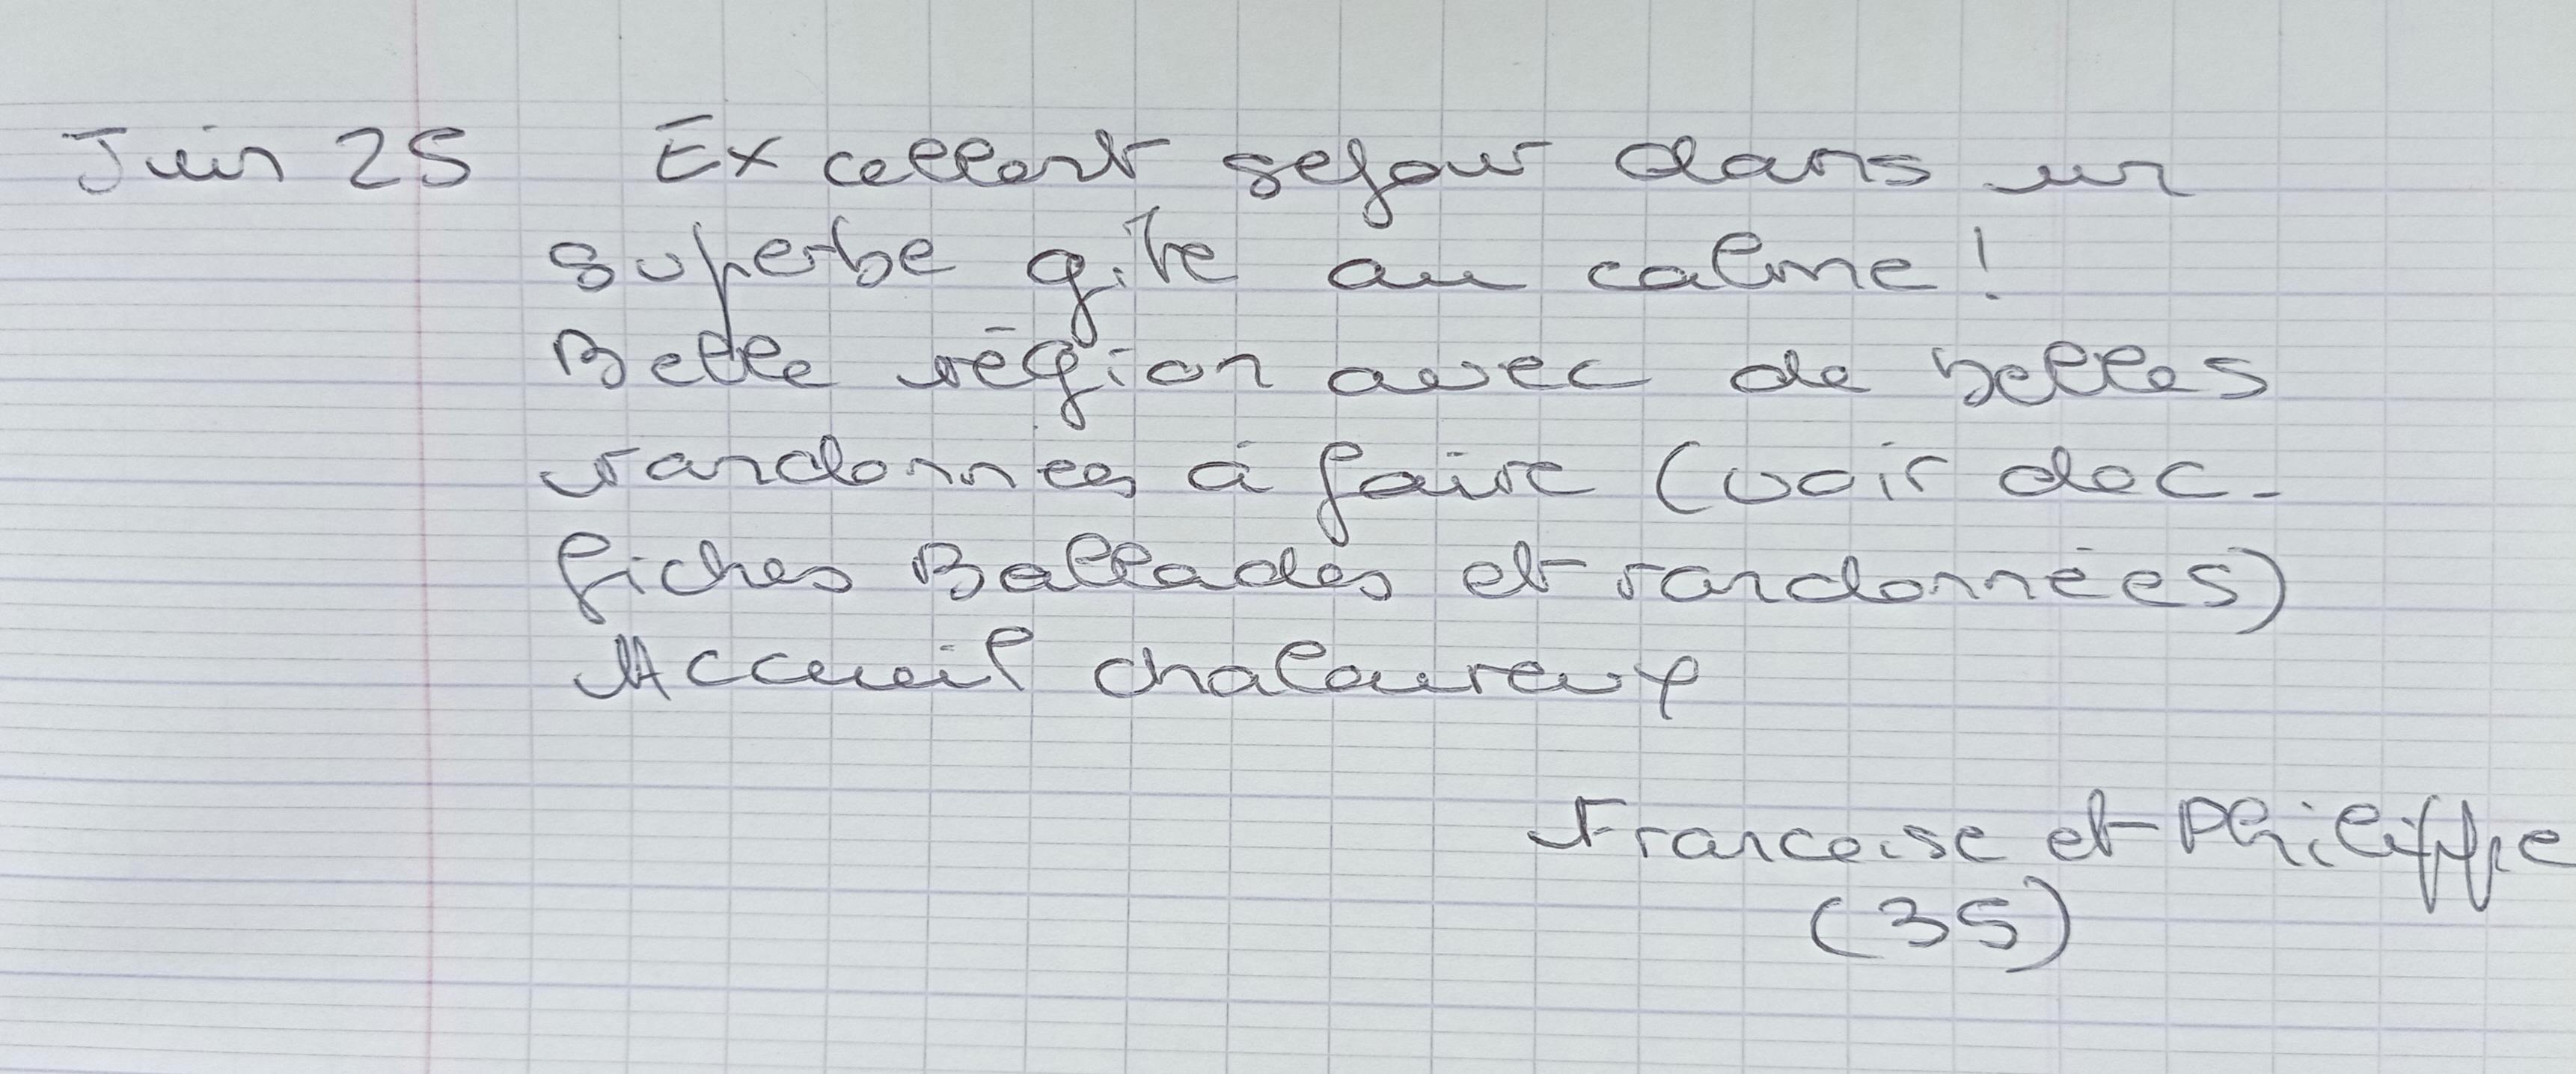 Juin 25 Excellent sejour dans un
superbe gîte au calme !
Belle région avec de belles
randonnees à faire (voir doc-
fiches Ballades et randonnées)
Accueil chaloureux
Francoise et Philippe
(35)